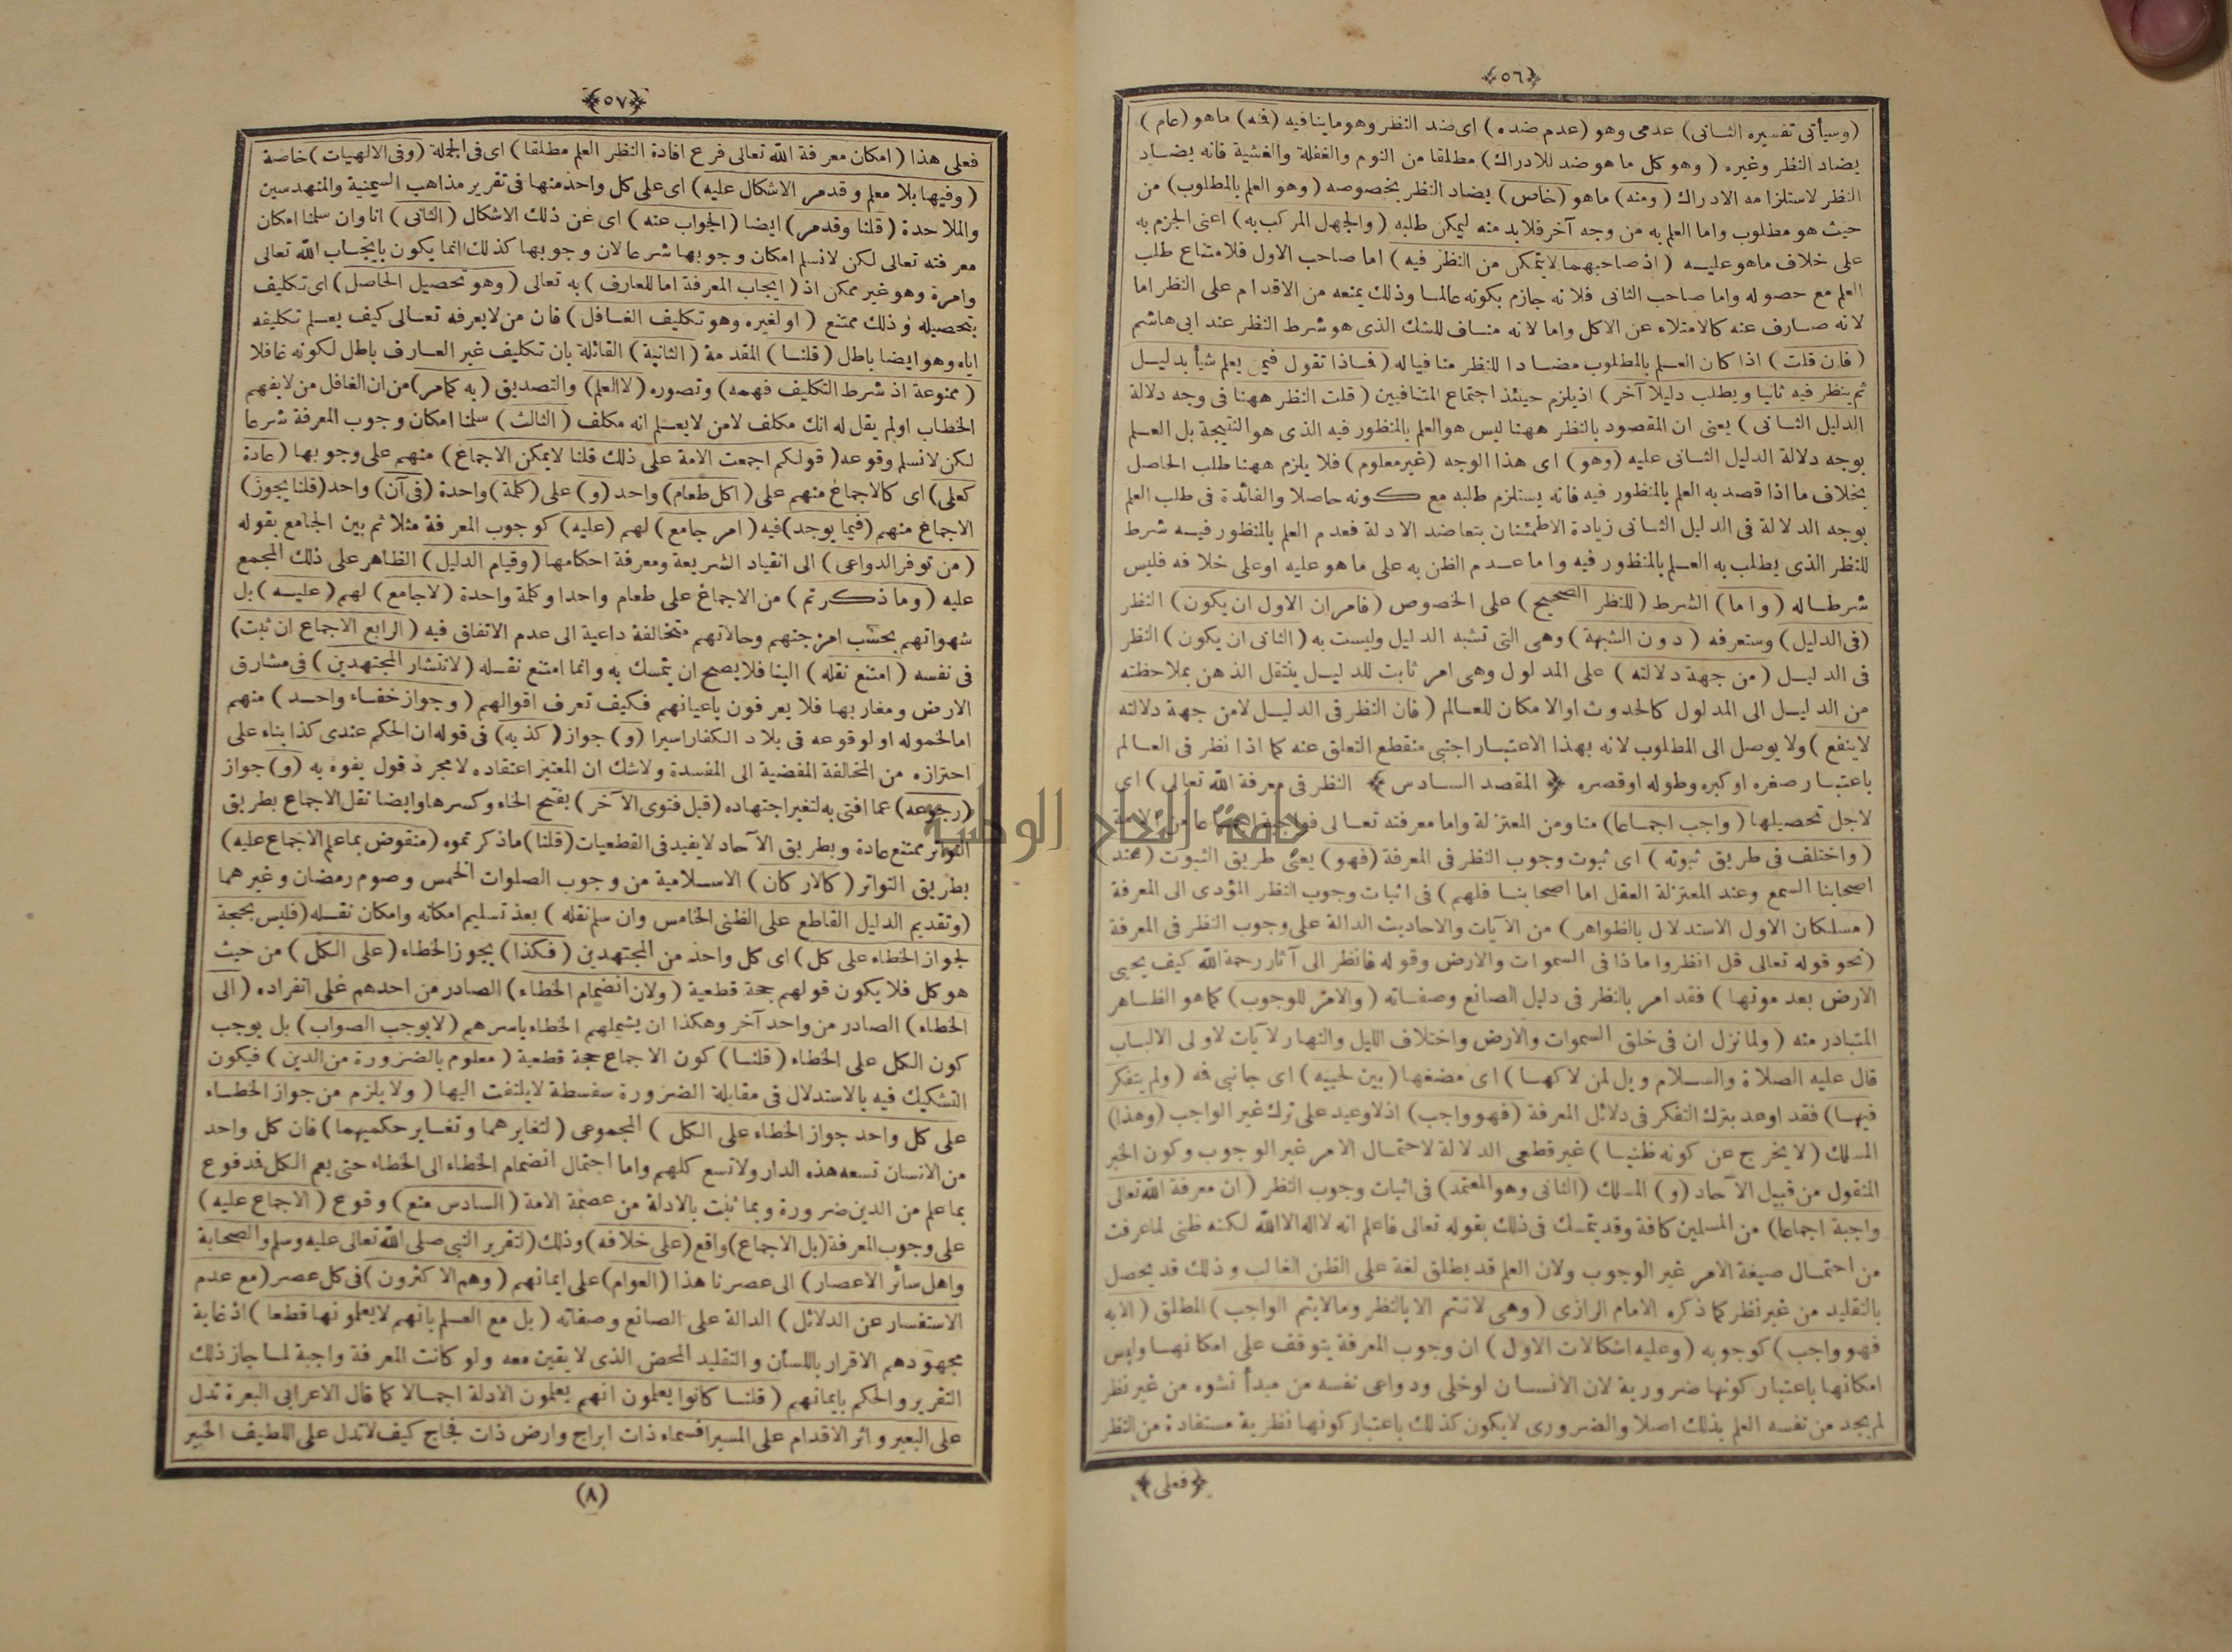 ﴿٥٦﴾
(وسيأتى تفسيره الثانى) عدمى وهو (عدم ضده) اى ضد النظر وهو ما ينافيه (فنه) ما هو (عام)
يضاد النظر وغيره (وهو كل ما هو ضد للادراك) مطلقا من النوم والغفلة والغشية فانه يضاد
النظر لاستلزامه الادراك (ومنه) ما هو (خاص) يضاد النظر بخصوصه (وهو العلم بالمطلوب) من
حيث هو مطلوب واما العلم به من وجه آخر فلا بد منه ليمكن طلبه (والجهل المركب به) اعنى الجزم به
على خلاف ما هو عليه (اذ صاحبهما لا يتمكن من النظر فيه) اما صاحب الاول فلامتناع طلب
العلم مع حصوله واما صاحب الثانى فلانه جازم بكونه عالما وذلك يمنعه من الاقدام على النظر اما
لانه صارف عنه كالامتلاء عن الاكل واما لانه مناف للشك الذى هو شرط النظر عند ابى هاشم
(فان قلت) اذا كان العلم بالمطلوب مضادا للنظر منافيا له (فاذا تقول فيمن يعلم شيأ بدليل
ثم ينظر فيه ثانيا ويطلب دليلا آخر) اذ يلزم حينئذ اجتماع المتنافيين (قلت النظر ههنا فى وجه دلالة
الدليل الثانى) يعنى ان المقصود بالنظر ههنا ليس هو العلم بالمنظور فيه الذى هو النتيجة بل العلم
بوجه دلالة الدليل الثانى عليه (وهو) اى هذا الوجه (غير معلوم) فلا يلزم ههنا طلب الحاصل
بخلاف ما اذا قصد به العلم بالمنظور فيه فانه يستلزم طلبه مع كونه حاصلا والفائدة فى طلب العلم
بوجه الدلالة فى الدليل الثانى زيادة الاطمئنان بتعاضد الادلة فعدم العلم بالمنظور فيه شرط
للنظر الذى يطلب به العلم بالمنظور فيه واما عدم الظن به على ما هو عليه او على خلافه فليس
شرطا له (واما) الشرط (للنظر الصحيح) على الخصوص (فامران الاول ان يكون) النظر
(فى الدليل) وستعرفه (دون الشبهة) وهى التى تشبه الدليل وليست به (الثانى ان يكون) النظر
فى الدليل (من جهة دلالته) على المدلول وهى امر ثابت للدليل ينتقل الذهن بملاحظته
من الدليل الى المدلول كالحدوث او الامكان للعالم (فان النظر فى الدليل لا من جهة دلالته
لا ينفع) ولا يوصل الى المطلوب لانه بهذا الاعتبار اجنبى منقطع التعلق عنه كما اذا نظر فى العالم
باعتبار صغره او كبره وطوله او قصره ﴿المقصد السادس﴾ النظر فى معرفة الله تعالى) اى
لاجل تحصيلها (واجب اجماعا) منا ومن المعتزلة واما معرفته تعالى فواجبة اجماعا من الامة
(واختلف فى طريق ثبوته) اى ثبوت وجوب النظر فى المعرفة (فهو) يعنى طريق الثبوت (عند
اصحابنا السمع وعند المعتزلة العقل اما اصحابنا فلهم) فى اثبات وجوب النظر المؤدى الى المعرفة
(مسلكان الاول الاستدلال بالظواهر) من الآيات والاحاديث الدالة على وجوب النظر فى المعرفة
(نحو قوله تعالى قل انظروا ماذا فى السموات والارض وقوله فانظر الى آثار رحمة الله كيف يحيى
الارض بعد موتها) فقد امر بالنظر فى دليل الصانع وصفاته (والامر للوجوب) كما هو الظاهر
المتبادر منه (ولما نزل ان فى خلق السموات والارض واختلاف الليل والنهار لآيات لاولى الالباب
قال عليه الصلاة والسلام ويل لمن لاكها) اى مضغها (بين لحييه) اى جانبى فه (ولم يتفكر
فيها) فقد اوعد بترك التفكر فى دلائل المعرفة (فهو واجب) اذ لا وعيد على ترك غير الواجب (وهذا)
المسلك (لا يخرج عن كونه ظنيا) غير قطعى الدلالة لاحتمال الامر غير الوجوب وكون الخبر
المنقول من قبيل الآحاد (و) المسلك (الثانى وهو المعتمد) فى اثبات وجوب النظر (ان معرفة الله تعالى
واجبة اجماعا) من المسلمين كافة وقد يتمسك فى ذلك بقوله تعالى فاعلم انه لا اله الا الله لكنه ظنى لما عرفت
من احتمال صيغة الامر غير الوجوب ولان العلم قد يطلق لغة على الظن الغالب وذلك قد يحصل
بالتقليد من غير نظر كما ذكره الامام الرازى (وهى لا تتم الا بالنظر وما لا يتم الواجب) المطلق (الا به
فهو واجب) كوجوبه (وعليه اشكالات الاول) ان وجوب المعرفة يتوقف على امكانها وليس
امكانها باعتبار كونها ضرورية لان الانسان لو خلى ودواعى نفسه من مبدأ نشوه من غير نظر
لم يجد من نفسه العلم بذلك اصلا والضرورى لا يكون كذلك باعتبار كونها نظرية مستفادة من النظر
﴿فعلى﴾
﴿٥٧﴾
فعلى هذا (امكان معرفة الله تعالى فرع افادة النظر العلم مطلقا) اى فى الجملة (وفى الالهيات) خاصة
(وفيها بلا معلم وقد مر الاشكال عليه) اى على كل واحد منها فى تقرير مذاهب السمنية والمهندسين
والملاحدة (قلنا وقد مر) ايضا (الجواب عنه) اى عن ذلك الاشكال (الثانى) انا وان سلمنا امكان
معرفته تعالى لكن لا نسلم امكان وجوبها شرعا لان وجوبها كذلك انما يكون بايجاب الله تعالى
وامره وهو غير ممكن اذ (ايجاب المعرفة اما للعارف) به تعالى (وهو تحصيل الحاصل) اى تكليف
بتحصيله وذلك ممتنع (او لغيره وهو تكليف الغافل) فان من لا يعرفه تعالى كيف يعلم تكليفه
اياه وهو ايضا باطل (قلنا) المقدمة (الثانية) القائلة بان تكليف غير العارف باطل لكونه غافلا
(ممنوعة اذ شرط التكليف فهمه) وتصوره (لا العلم) والتصديق (به كما مر) من ان الغافل من لا يفهم
الخطاب او لم يقل له انك مكلف لا من لا يعلم انه مكلف (الثالث) سلمنا امكان وجوب المعرفة شرعا
لكن لا نسلم وقوعه (قولكم اجمعت الامة على ذلك قلنا لا يمكن الاجماع) منهم على وجوبها (عادة
كعلى) اى كالاجماع منهم على (اكل طعام) واحد (و) على (كلمة) واحدة (فى آن) واحد (قلنا يجوز)
الاجماع منهم (فيما يوجد) فيه (امر جامع) لهم (عليه) كوجوب المعرفة مثلا ثم بين الجامع بقوله
(من توفر الدواعى) الى انقياد الشريعة ومعرفة احكامها (وقيام الدليل) الظاهر على ذلك المجمع
عليه (وما ذكرتم) من الاجماع على طعام واحد او كلمة واحدة (لا جامع) لهم (عليه) بل
شهواتهم بحسب امزجتهم وحالاتهم متخالفة داعية الى عدم الاتفاق فيه (الرابع الاجماع ان ثبت)
فى نفسه (امتنع نقله) الينا فلا يصح ان يتمسك به وانما امتنع نقله (لانتشار المجتهدين) فى مشارق
الارض ومغاربها فلا يعرفون باعيانهم فكيف تعرف اقوالهم (وجواز خفاء واحد) منهم
اما لخموله او لوقوعه فى بلاد الكفار اسيرا (و) جواز (كذبه) فى قوله ان الحكم عندى كذا بناء على
احترازه من المخالفة المفضية الى المفسدة ولا شك ان المعتبر اعتقاده لا مجرد قول يفوه به (و) جواز
(رجوعه) عما افتى به لتغير اجتهاده (قبل فتوى الآخر) بفتح الخاء وكسرها وايضا نقل الاجماع بطريق
التواتر ممتنع عادة وبطريق الآحاد لا يفيد فى القطعيات (قلنا) ما ذكرتموه (منقوض بما علم الاجماع عليه)
بطريق التواتر (كالاركان) الاسلامية من وجوب الصلوات الخمس وصوم رمضان وغيرهما
(وتقديم الدليل القاطع على الظنى الخامس وان سلم نقله) بعد تسليم امكانه وامكان نقله (فليس بحجة
لجواز الخطاء على كل) اى كل واحد من المجتهدين (فكذا) يجوز الخطاء (على الكل) من حيث
هو كل فلا يكون قولهم حجة قطعية (ولان انضمام الخطاء) الصادر من احدهم على انفراده (الى
الخطاء) الصادر من واحد آخر وهكذا ان يشملهم الخطاء باسرهم (لا يوجب الصواب) بل يوجب
كون الكل على الخطاء (قلنا) كون الاجماع حجة قطعية (معلوم بالضرورة من الدين) فيكون
التشكيك فيه بالاستدلال فى مقابلة الضرورة سفسطة لا يلتفت اليها (ولا يلزم من جواز الخطاء
على كل واحد جواز الخطاء على الكل) المجموعى (لتغايرهما وتغاير حكميهما) فان كل واحد
من الانسان تسعه هذه الدار ولا تسع كلهم واما احتمال انضمام الخطاء الى الخطاء حتى يعم الكل فدفوع
بما علم من الدين ضرورة وبما ثبت بالادلة من عصمة الامة (السادس منع) وقوع (الاجماع عليه)
على وجوب المعرفة (بل الاجماع) واقع (على خلافه) وذلك (لتقرير النبى صلى الله تعالى عليه وسلم والصحابة
واهل سائر الاعصار) الى عصرنا هذا (العوام) على ايمانهم (وهم الاكثرون) فى كل عصر (مع عدم
الاستفسار عن الدلائل) الدالة على الصانع وصفاته (بل مع العلم بانهم لا يعلمونها قطعا) اذ غاية
مجهودهم الاقرار باللسان والتقليد المحض الذى لا يقين معه ولو كانت المعرفة واجبة لما جاز ذلك
التقرير والحكم بايمانهم (قلنا كانوا يعلمون انهم يعلمون الادلة اجمالا كما قال الاعرابى البعرة تدل
على البعير واثر الاقدام على المسير افسماء ذات ابراج وارض ذات فجاج كيف لا تدل على اللطيف الخبير
(٨)
جامعة النجاح الوطنية